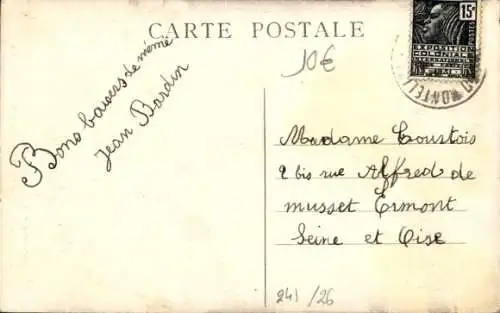 CARTE POSTALE
15c
POSTES
EXPOSITION
COLONIALE
INTERNATIONALE
PARIS 1931
10€
Bons baisers de même
Jean Bardin
Madame Loustois
2 bis rue Alfred de
musset Ermont
Seine et Oise
241/26